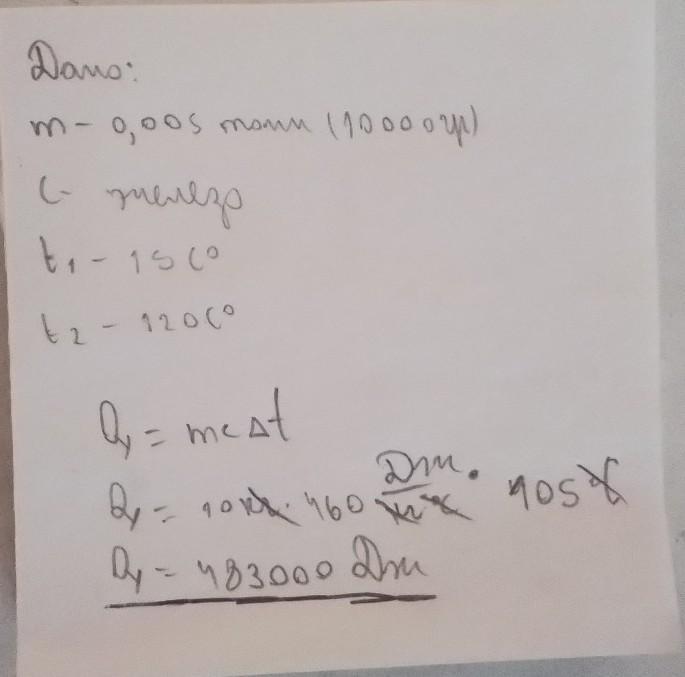 Дано:
m - 0,005 тонн (10000гр)
C - железо
t₁ - 15 C°
t₂ - 120 C°
Q = mc∆t
Q = 10кг · 460 Дж/кг·C · 105 C
Q = 483000 Дж